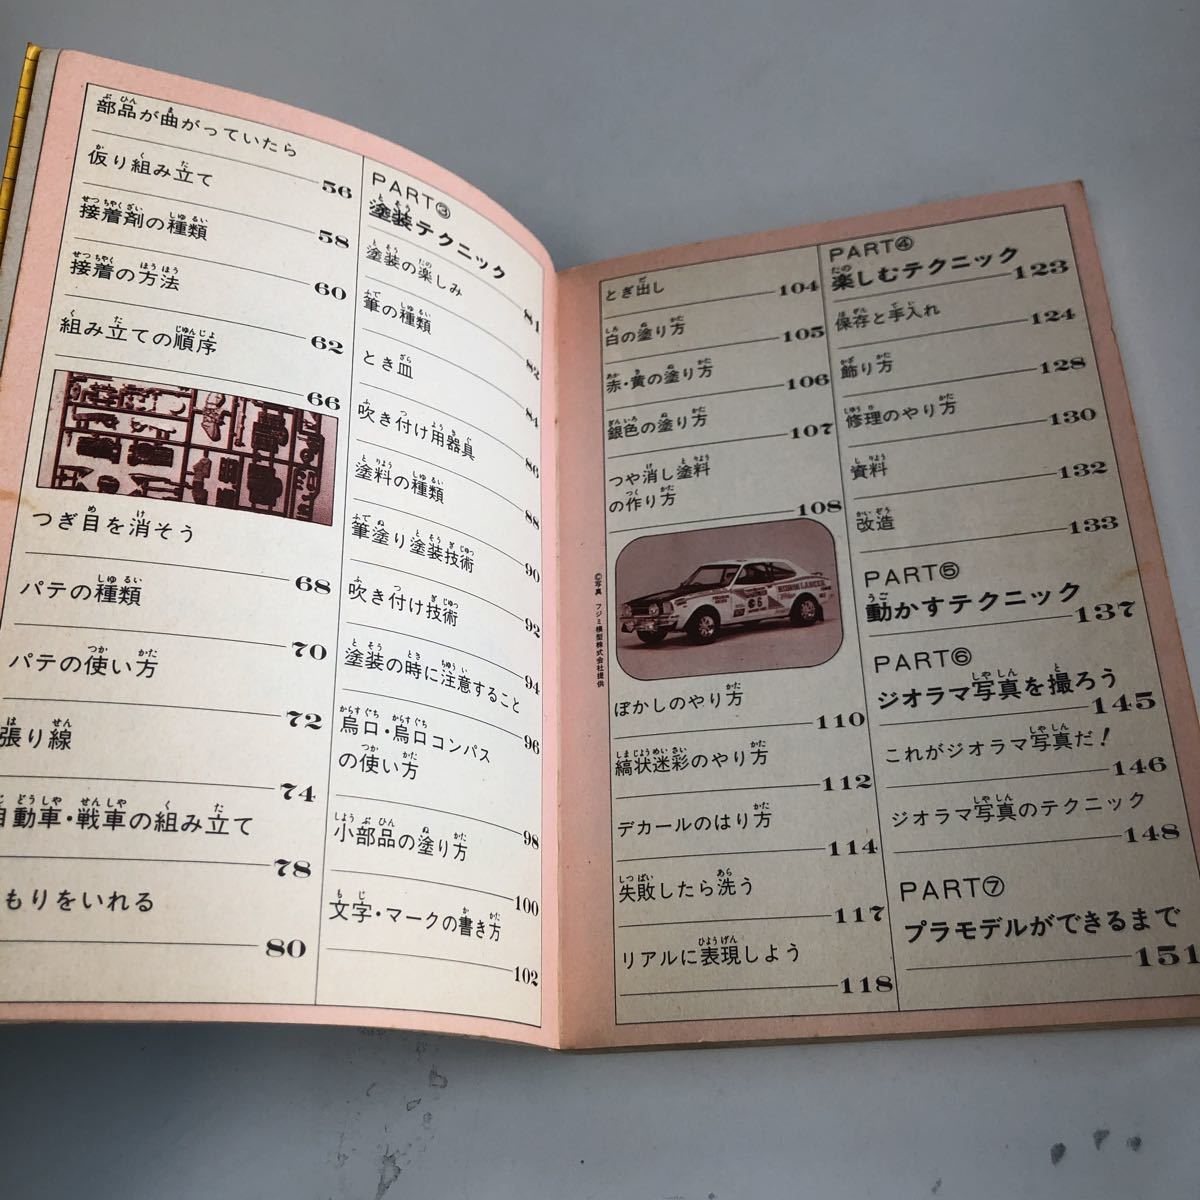 部品が曲がっていたら
56
仮り組み立て
58
接着剤の種類
60
接着の方法
62
組み立ての順序
66
つぎ目を消そう
68
パテの種類
70
パテの使い方
72
張り線
74
自動車・戦車の組み立て
78
もりをいれる
80
PART③
塗装テクニック
81
塗装の楽しみ
82
筆の種類
84
とき皿
86
吹き付け用器具
88
塗料の種類
90
筆塗り塗装技術
92
吹き付け技術
94
塗装の時に注意すること
96
烏口・烏口コンパス
の使い方
98
小部品の塗り方
100
文字・マークの書き方
102
とぎ出し
104
白の塗り方
105
赤・黄の塗り方
106
銀色の塗り方
107
つや消し塗料
の作り方
108
©写真 フジミ模型株式会社提供
ぼかしのやり方
110
縞状迷彩のやり方
112
デカールのはり方
114
失敗したら洗う
117
リアルに表現しよう
118
PART④
楽しむテクニック
123
保存と手入れ
124
飾り方
128
修理のやり方
130
資料
132
改造
133
PART⑤
動かすテクニック
137
PART⑥
ジオラマ写真を撮ろう
145
これがジオラマ写真だ!
146
ジオラマ写真のテクニック
148
PART⑦
プラモデルができるまで
151